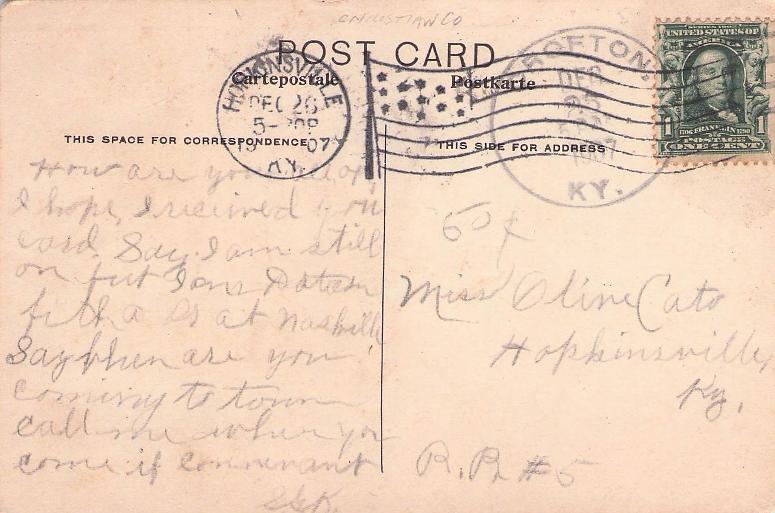 CHRISTIAN CO
POST CARD
Cartepostale
Postkarte
HOPKINSVILLE
DEC 26
5- 30P
07
KY.
CROFTON,
DEC
25
1907
KY.
UNITED STATES OF
1706 FRANKLIN 1790
POSTAGE
1 1
ONE CENT
THIS SPACE FOR CORRESPONDENCE
THIS SIDE FOR ADDRESS
How are you
I hope, I recieved you
card. Say I am still
on
at Nashville
Say when are you
coming to town
call me when you
come if convenant
50¢
Miss Oline Cato
Hopkinsville,
Ky,
R.R. #5